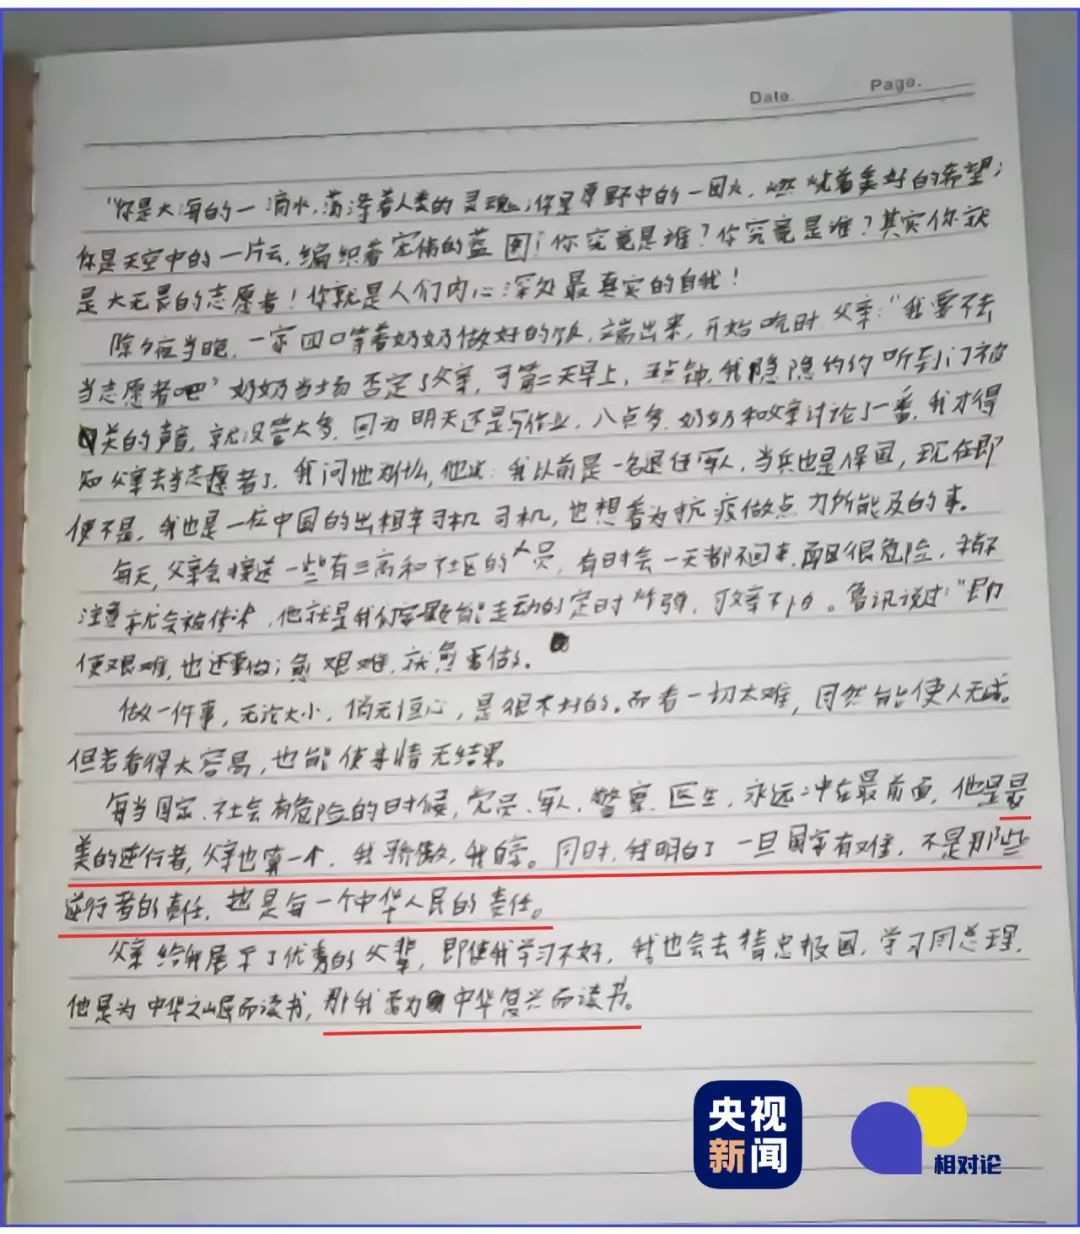 Date. Page.
"你是大海的一滴水,荡涤着人类的灵魂;你是原野中的一团火,燃烧着美好的希望;
你是天空中的一片云,编织着宏伟的蓝图!你究竟是谁?你究竟是谁?其实你就
是大无畏的志愿者!你就是人们内心深处最真实的自我!
除夕夜当晚,一家四口等着奶奶做好的饭,端出来,开始吃时,父亲:"我要不去
当志愿者吧"奶奶当场否定了父亲,可第二天早上,五点钟,我隐隐约约听到门被
关的声音,就没管太多,因为明天还是写作业,八点多,奶奶和父亲讨论了一番,我才得
知父亲去当志愿者了,我问他为什么,他说:我以前是一名退任军人,当兵也是保国,现在即
使不是,我也是一位中国的出租车司机司机,也想着为抗疫做点力所能及的事。
每天,父亲会接送一些有三高和社区的人员,有时会一天都不回来,而且很危险,稍不
注意就会被传染,他就是我们家最能走动的定时炸弹,可父亲不怕。鲁讯说过:"即
使艰难,也还要做;愈艰难,就愈要做。
做一件事,无论大小,倘无恒心,是很不好的。而看一切太难,固然能使人无成。
但若看得太容易,也能使事情无结果。
每当国家、社会有危险的时候,党员、军人、警察、医生,永远冲在最前面,他是最
美的逆行者,父亲也算一个,我骄傲,我自豪。同时,我明白了一旦国家有难,不是那些
逆行者的责任,也是每一个中华人民的责任。
父亲给我展示了优秀的父辈,即使我学习不好,我也会去精忠报国,学习周总理,
他是为中华之崛而读书,那我要为中华复兴而读书。
央视
新闻
相对论